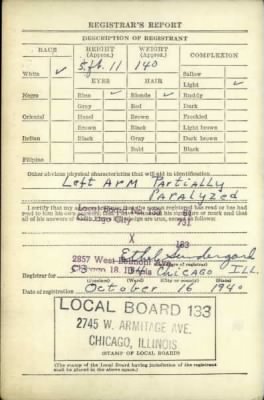 REGISTRAR'S REPORT
DESCRIPTION OF REGISTRANT
RACE HEIGHT (Approx.) WEIGHT (Approx.) COMPLEXION
White ✓ 5 ft. 11 140 Sallow
EYES HAIR Light ✓
Negro Blue ✓ Blonde ✓ Ruddy
Gray Red Dark
Oriental Hazel Brown Freckled
Brown Black Light brown
Indian Black Gray Dark brown
Bald Black
Filipino
Other obvious physical characteristics that will aid in identification
Left Arm Partially
Paralyzed
I certify that my answers are true; that the person registered has read or has had
read to him his own answers; that I have witnessed his signature or mark and that
all of his answers of which I have knowledge are true, except as follows:
X 133
Ethel
2857 West Belmont Ave.
Registrar for 34 Chicago ILL.
Chicago 18, Illinois
(Precinct) (Ward) (City or county) (State)
Date of registration October 16 1940
LOCAL BOARD 133
2745 W. ARMITAGE AVE.
CHICAGO, ILLINOIS
(STAMP OF LOCAL BOARD)
(The stamp of the Local Board having jurisdiction of the registrant
shall be placed in the above space.)